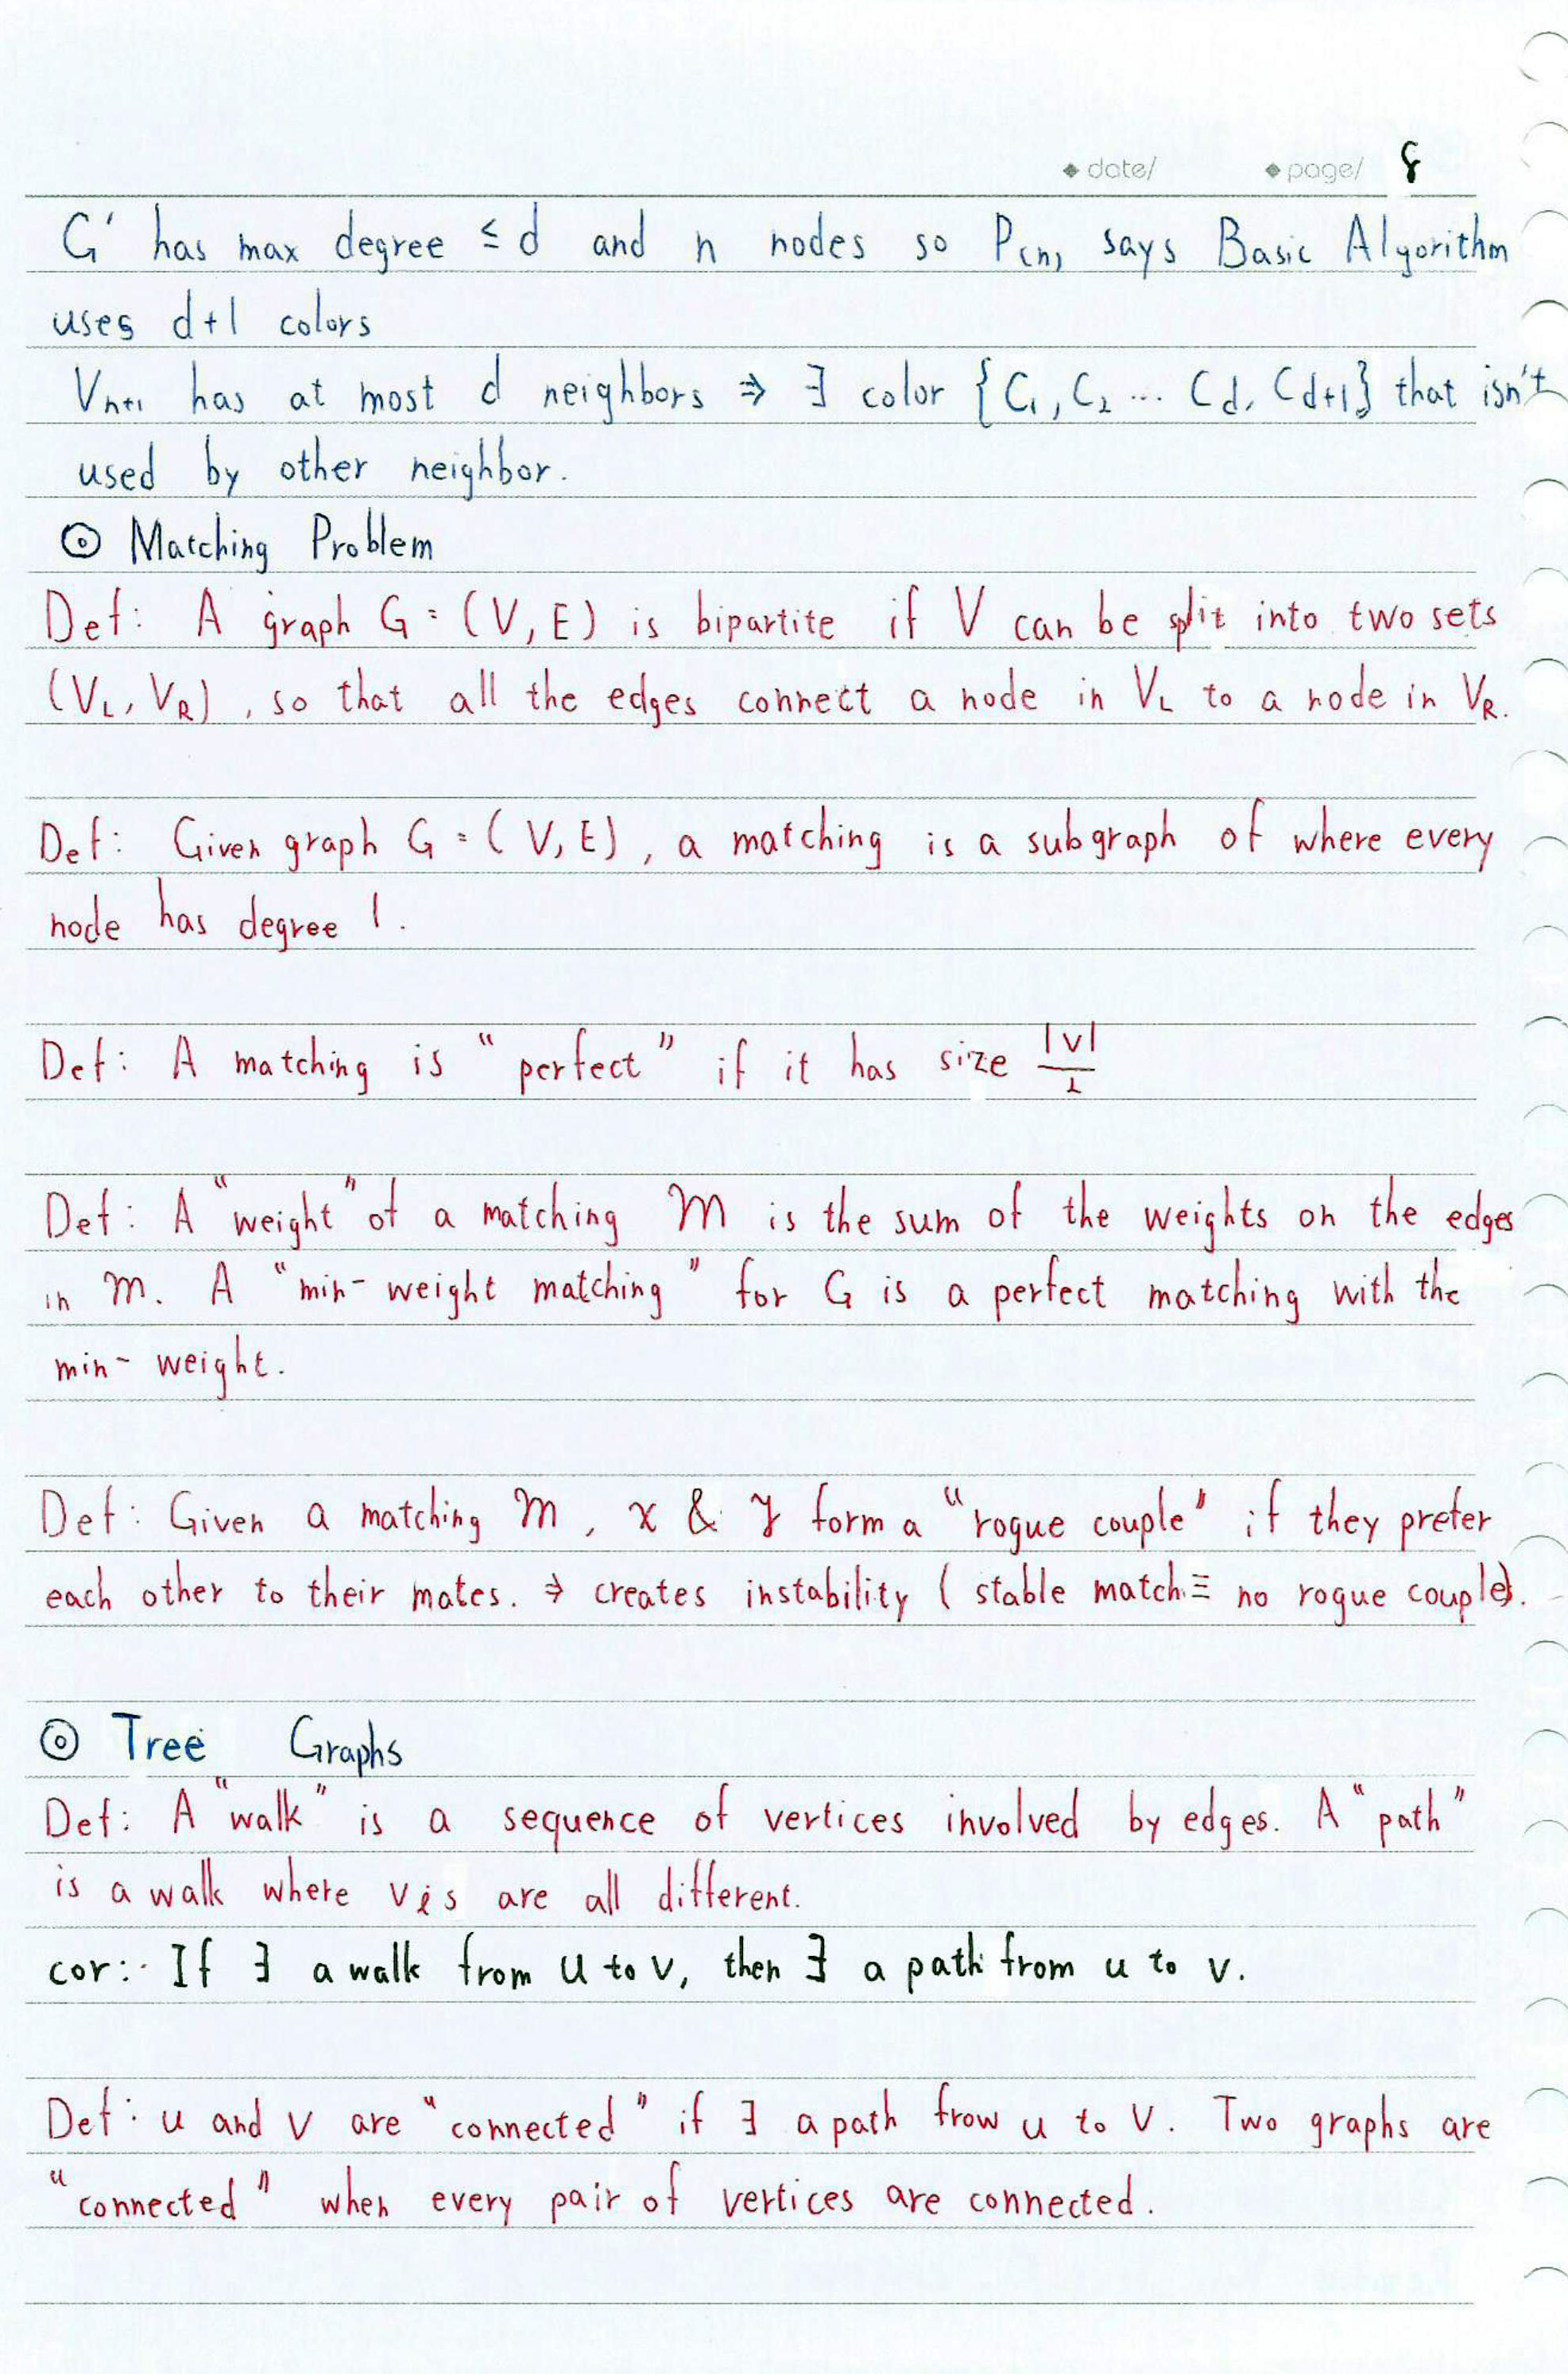 ◆ date/ ◆ page/ 8
G' has max degree ≤ d and n nodes so P(n) says Basic Algorithm
uses d+1 colors
Vn+1 has at most d neighbors ⇒ ∃ color {C1, C2 ... Cd, Cd+1} that isn't
used by other neighbor.
⊙ Matching Problem
Def: A graph G = (V, E) is bipartite if V can be split into two sets
(VL, VR), so that all the edges connect a node in VL to a node in VR.
Def: Given graph G = (V, E), a matching is a subgraph of where every
node has degree 1.
Def: A matching is "perfect" if it has size |V|/2
Def: A "weight" of a matching M is the sum of the weights on the edges
in M. A "min-weight matching" for G is a perfect matching with the
min-weight.
Def: Given a matching M, x & y form a "rogue couple" if they prefer
each other to their mates. ⇒ creates instability (stable match. ≡ no rogue couple).
⊙ Tree Graphs
Def: A "walk" is a sequence of vertices involved by edges. A "path"
is a walk where vis are all different.
cor: If ∃ a walk from u to v, then ∃ a path from u to v.
Def: u and v are "connected" if ∃ a path from u to v. Two graphs are
"connected" when every pair of vertices are connected.